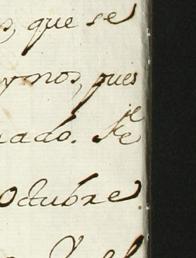 s, que se
ynos, pues
uado. Se
Octubre